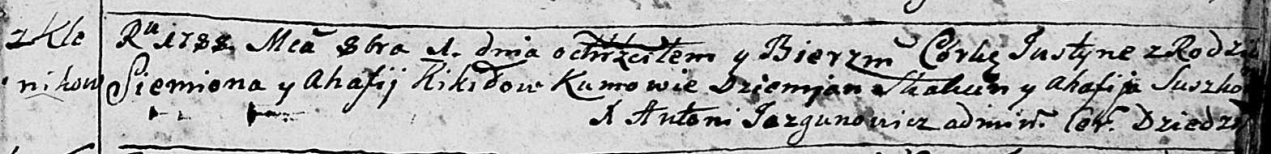 z Kle
nikow
Ru 1788 Mca 8bra 1. dnia ochrzciłem y Bierzm Corkę Justynę z Rodzi
Siemiona y Ahafij Kikiłow Kumowie Dziemjan Skakun y Ahafija Suszko
X Antoni Jazgunowicz admin. Cer. Dziedz